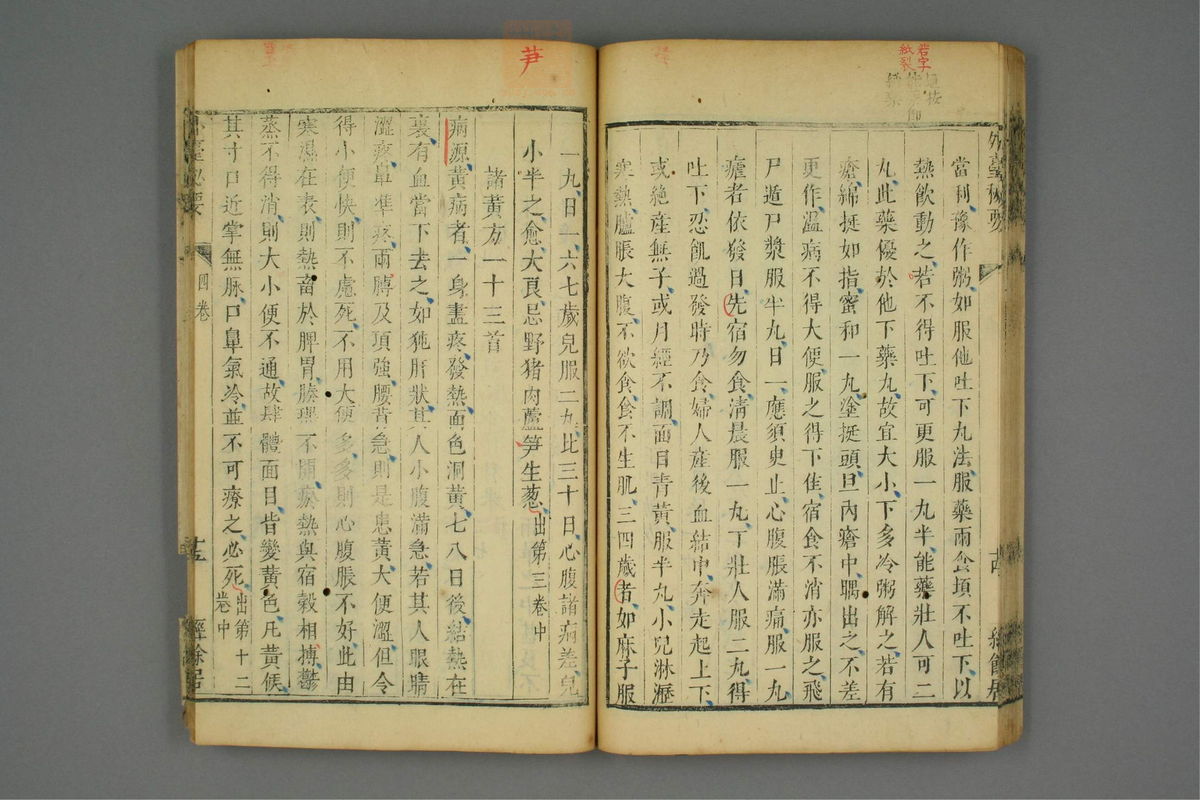 外臺秘要
經餘居
當利豫作粥如服他吐下丸法服藥兩食頃不吐下以
熱飲動之若不得吐下可更服一丸半能藥壯人可二
丸此藥優於他下藥丸故宜大小下多冷粥解之若有
瘡綿挺如指蜜和一丸塗挺頭旦內瘡中隅出之不差
更作溫病不得大便服之得下佳宿食不消亦服之飛
尸遁尸漿服半丸日一應須臾止心腹脹滿痛服一丸
瘧者依發日先宿勿食清晨服一丸丁壯人服二丸得
吐下忍飢過發時乃食婦人產後血結中奔走起上下
或絶產無子或月經不調面目青黃服半丸小兒淋瀝
寒熱臚脹大腹不欲食食不生肌三四歲者如麻子服
一丸日一六七歲兒服二丸比三十日心腹諸病差兒
小半之愈大良忌野猪肉蘆笋生葱出第三卷中
諸黃方一十三首
病源黃病者一身盡疼發熱面色洞黃七八日後結熱在
裏有血當下去之如㹠肝狀其人小腹滿急若其人眼睛
澀疼鼻準疼兩膊及項強腰背急則是患黃大便澀但令
得小便快則不慮死不用大便多多則心腹脹不好此由
寒濕在表則熱畜於脾胃腠理不開瘀熱與宿穀相搏鬱
蒸不得消則大小便不通故身體面目皆變黃色凡黃候
其寸口近掌無脉口鼻氣冷並不可療之必死出第十二
卷中
外臺秘要
四卷
經餘居
若字
紙裂
笋